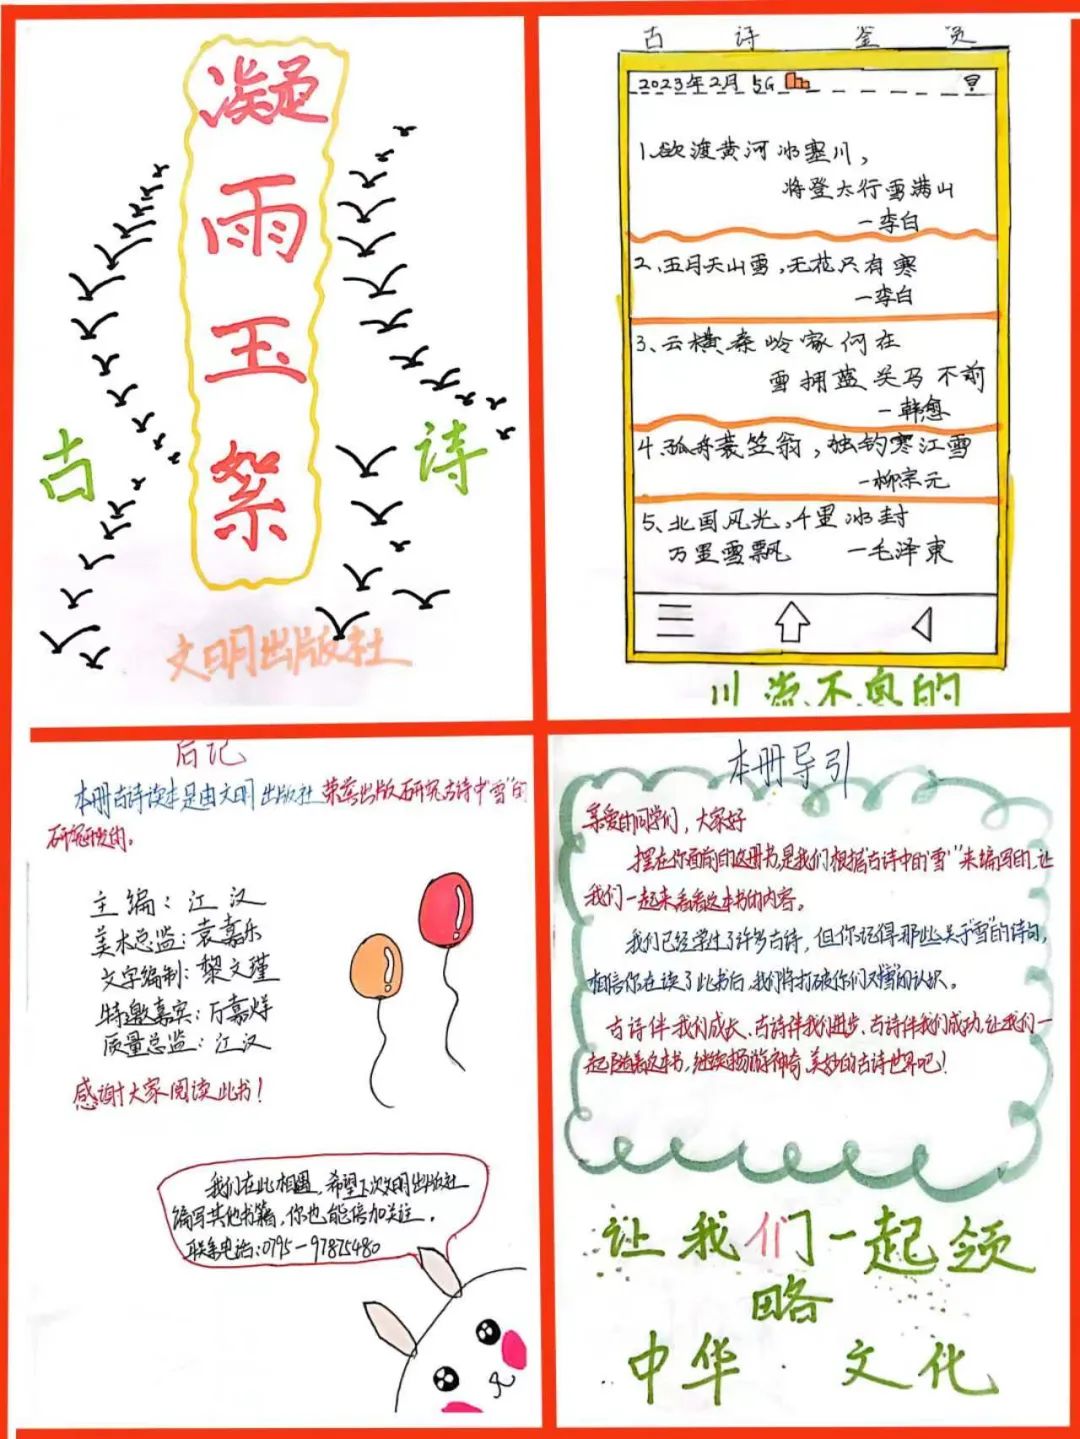 凝
雨
玉
絮
古
诗
文明出版社
古诗鉴赏
2023年2月 5G
1.欲渡黄河冰塞川，
将登太行雪满山
—李白
2、五月天山雪，无花只有寒
—李白
3、云横秦岭家何在
雪拥蓝关马不前
—韩愈
4、孤舟蓑笠翁，独钓寒江雪
—柳宗元
5、北国风光，千里冰封
万里雪飘 —毛泽东
后记
本册古诗读本是由文明出版社荣誉出版研究古诗中"雪"的
的。
主编：江汉
美术总监：袁嘉乐
文字编制：黎文瑾
特邀嘉宾：万嘉烊
质量总监：江汉
感谢大家阅读此书！
我们在此相遇，希望下次文明出版社
编写其他书籍，你也能倍加关注。
联系电话：0795-97875480
本册导引
亲爱的同学们，大家好
摆在你面前的这册书，是我们根据古诗中的"雪"来编写的，让
我们一起来看看这本书的内容。
我们已经学过了许多古诗，但你记得那些关于"雪"的诗句，
相信你在读了此书后，我们将打破你们对"雪"的认识。
古诗伴我们成长、古诗伴我们进步、古诗伴我们成功，让我们一
起随着这本书，继续畅游神奇、美妙的古诗世界吧！
让我们一起领
略
中华·文化